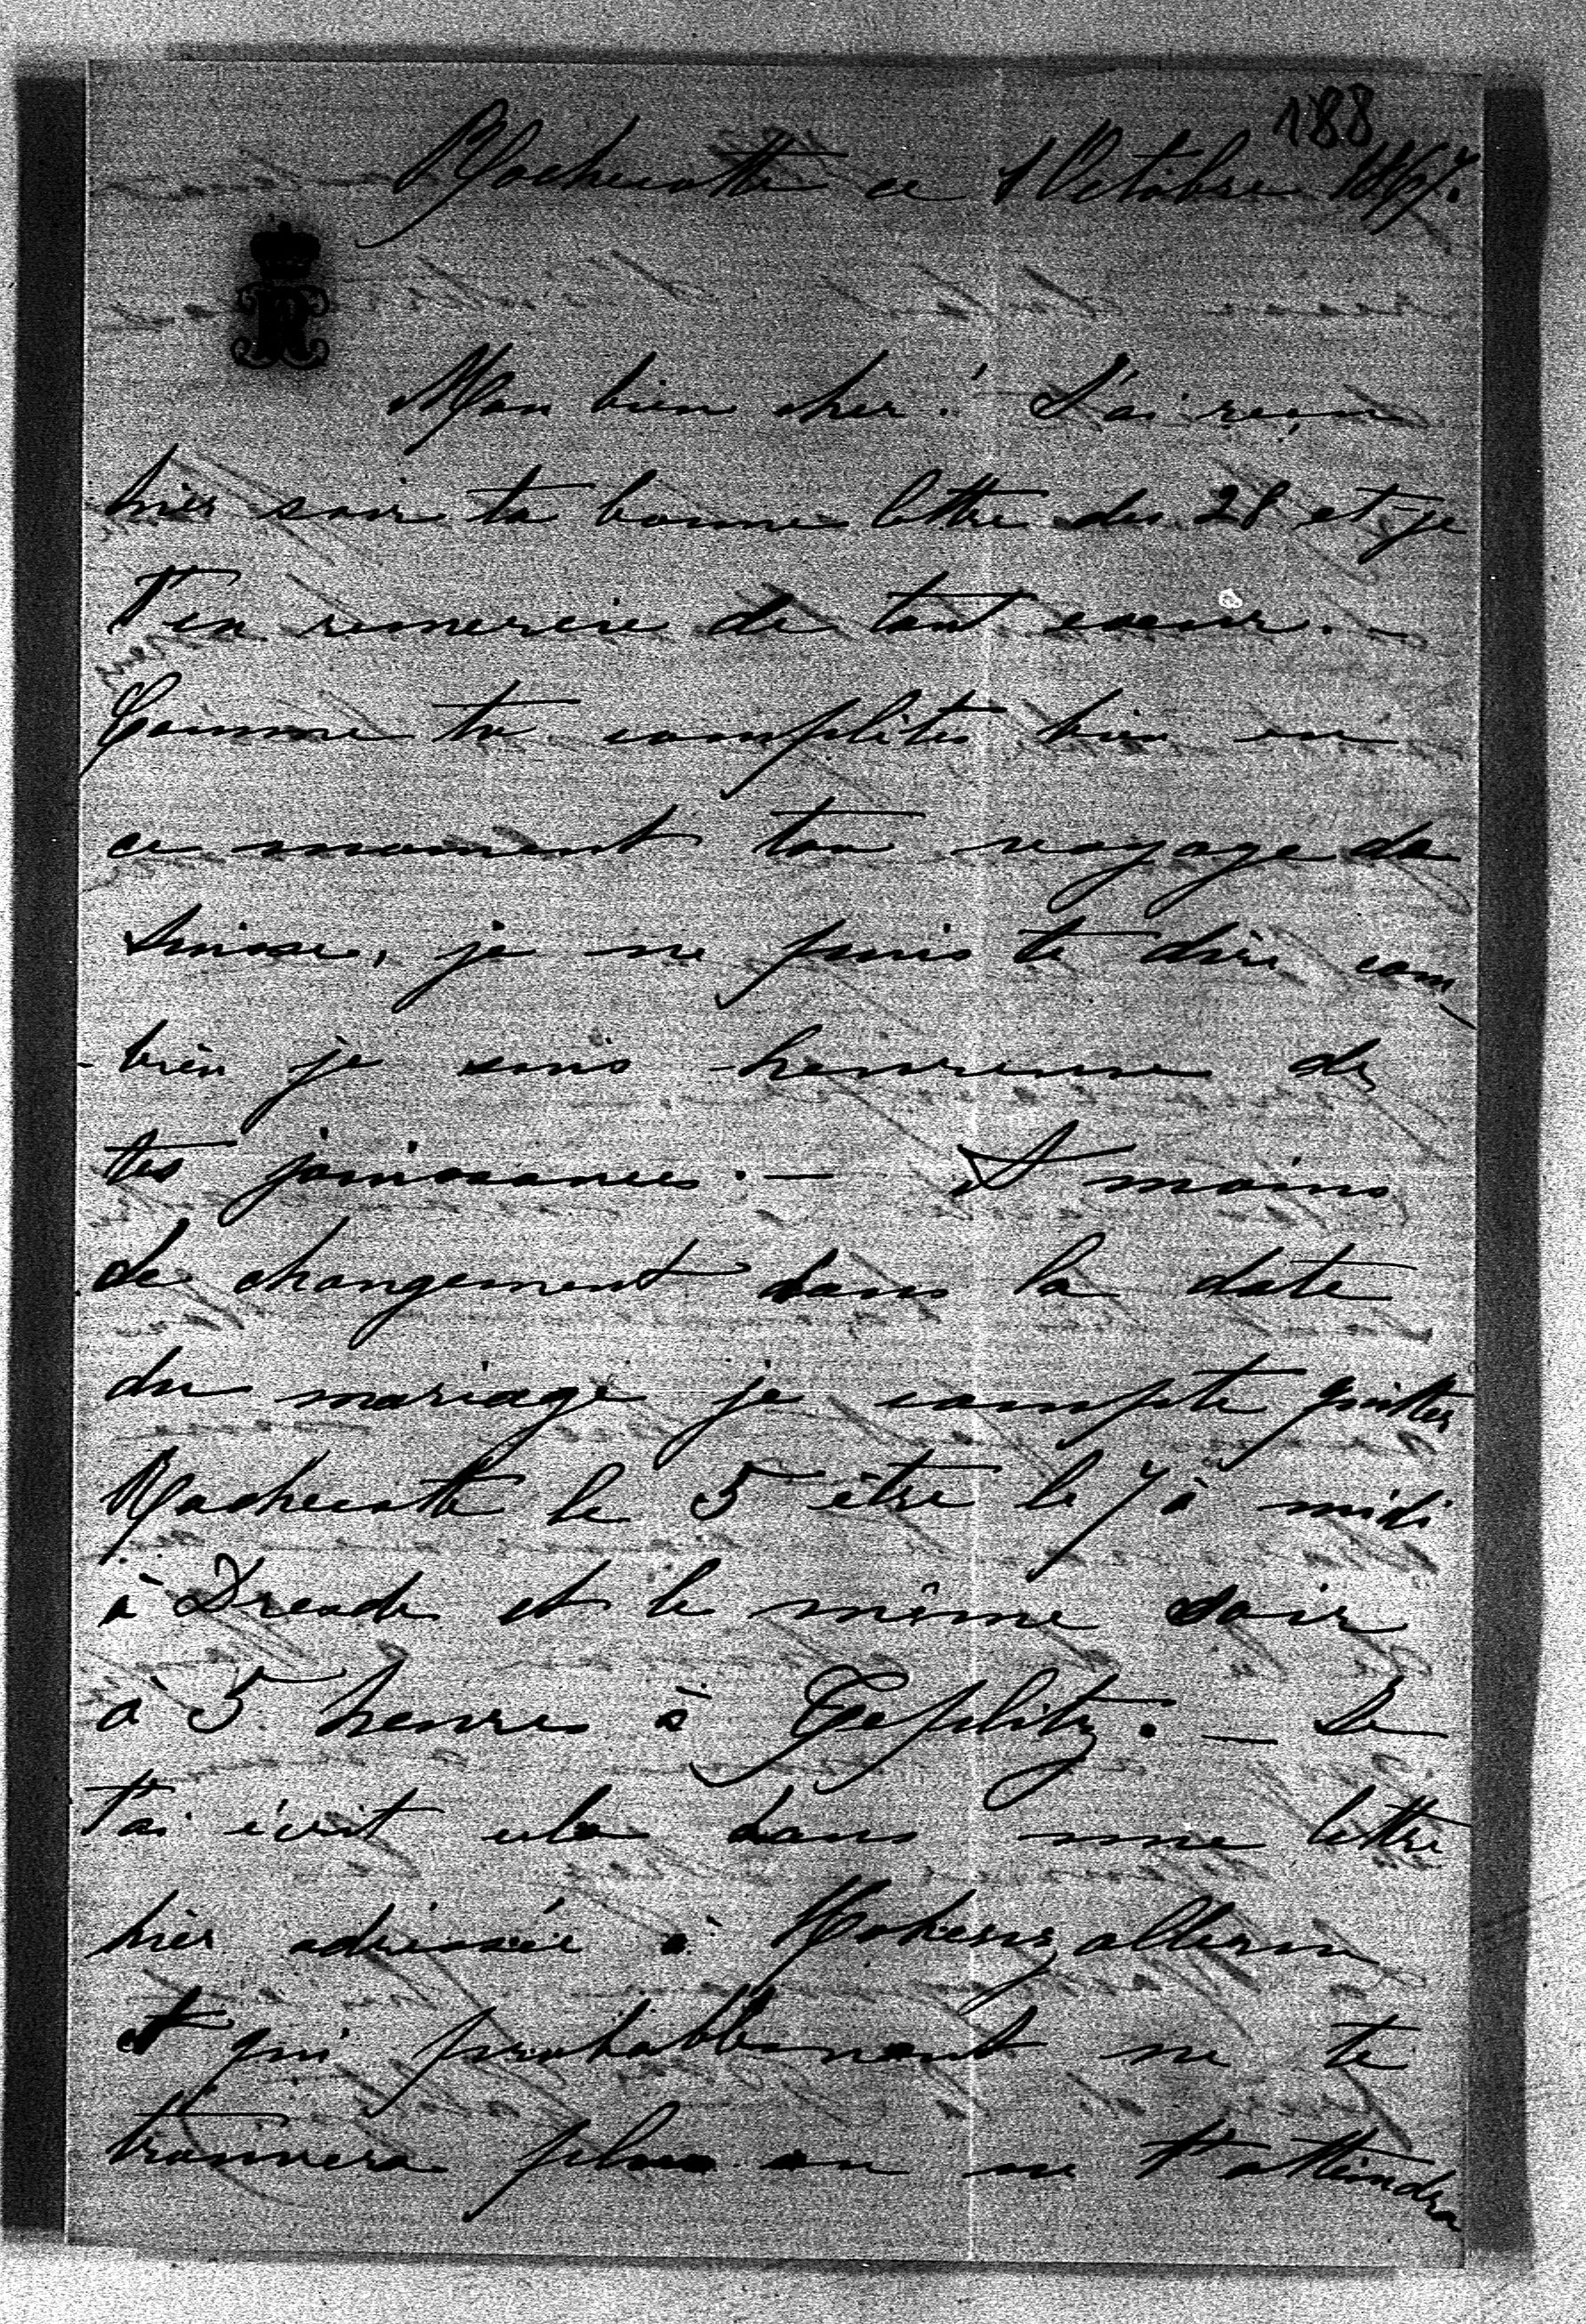 188
Rochecotte ce 1 Octobre 1867.
Mon bien cher! J'ai reçu
hier soir ta bonne lettre du 28 et je
t'en remercie de tout coeur. —
Comme tu complètes bien en
ce moment ton voyage de
Suisse, je ne puis te dire com
-bien je suis heureuse de
tes jouissances. — A moins
de changement dans la date
du mariage je compte quitter
Rochecotte le 5 être le 7 à midi
à Dresde et le même soir
à 5 heures à Teplitz. — Je
t'ai écrit cela dans une lettre
hier adressée à Hohenzollern
et qui probablement ne te
trouvera plus ou ne t'atteindra